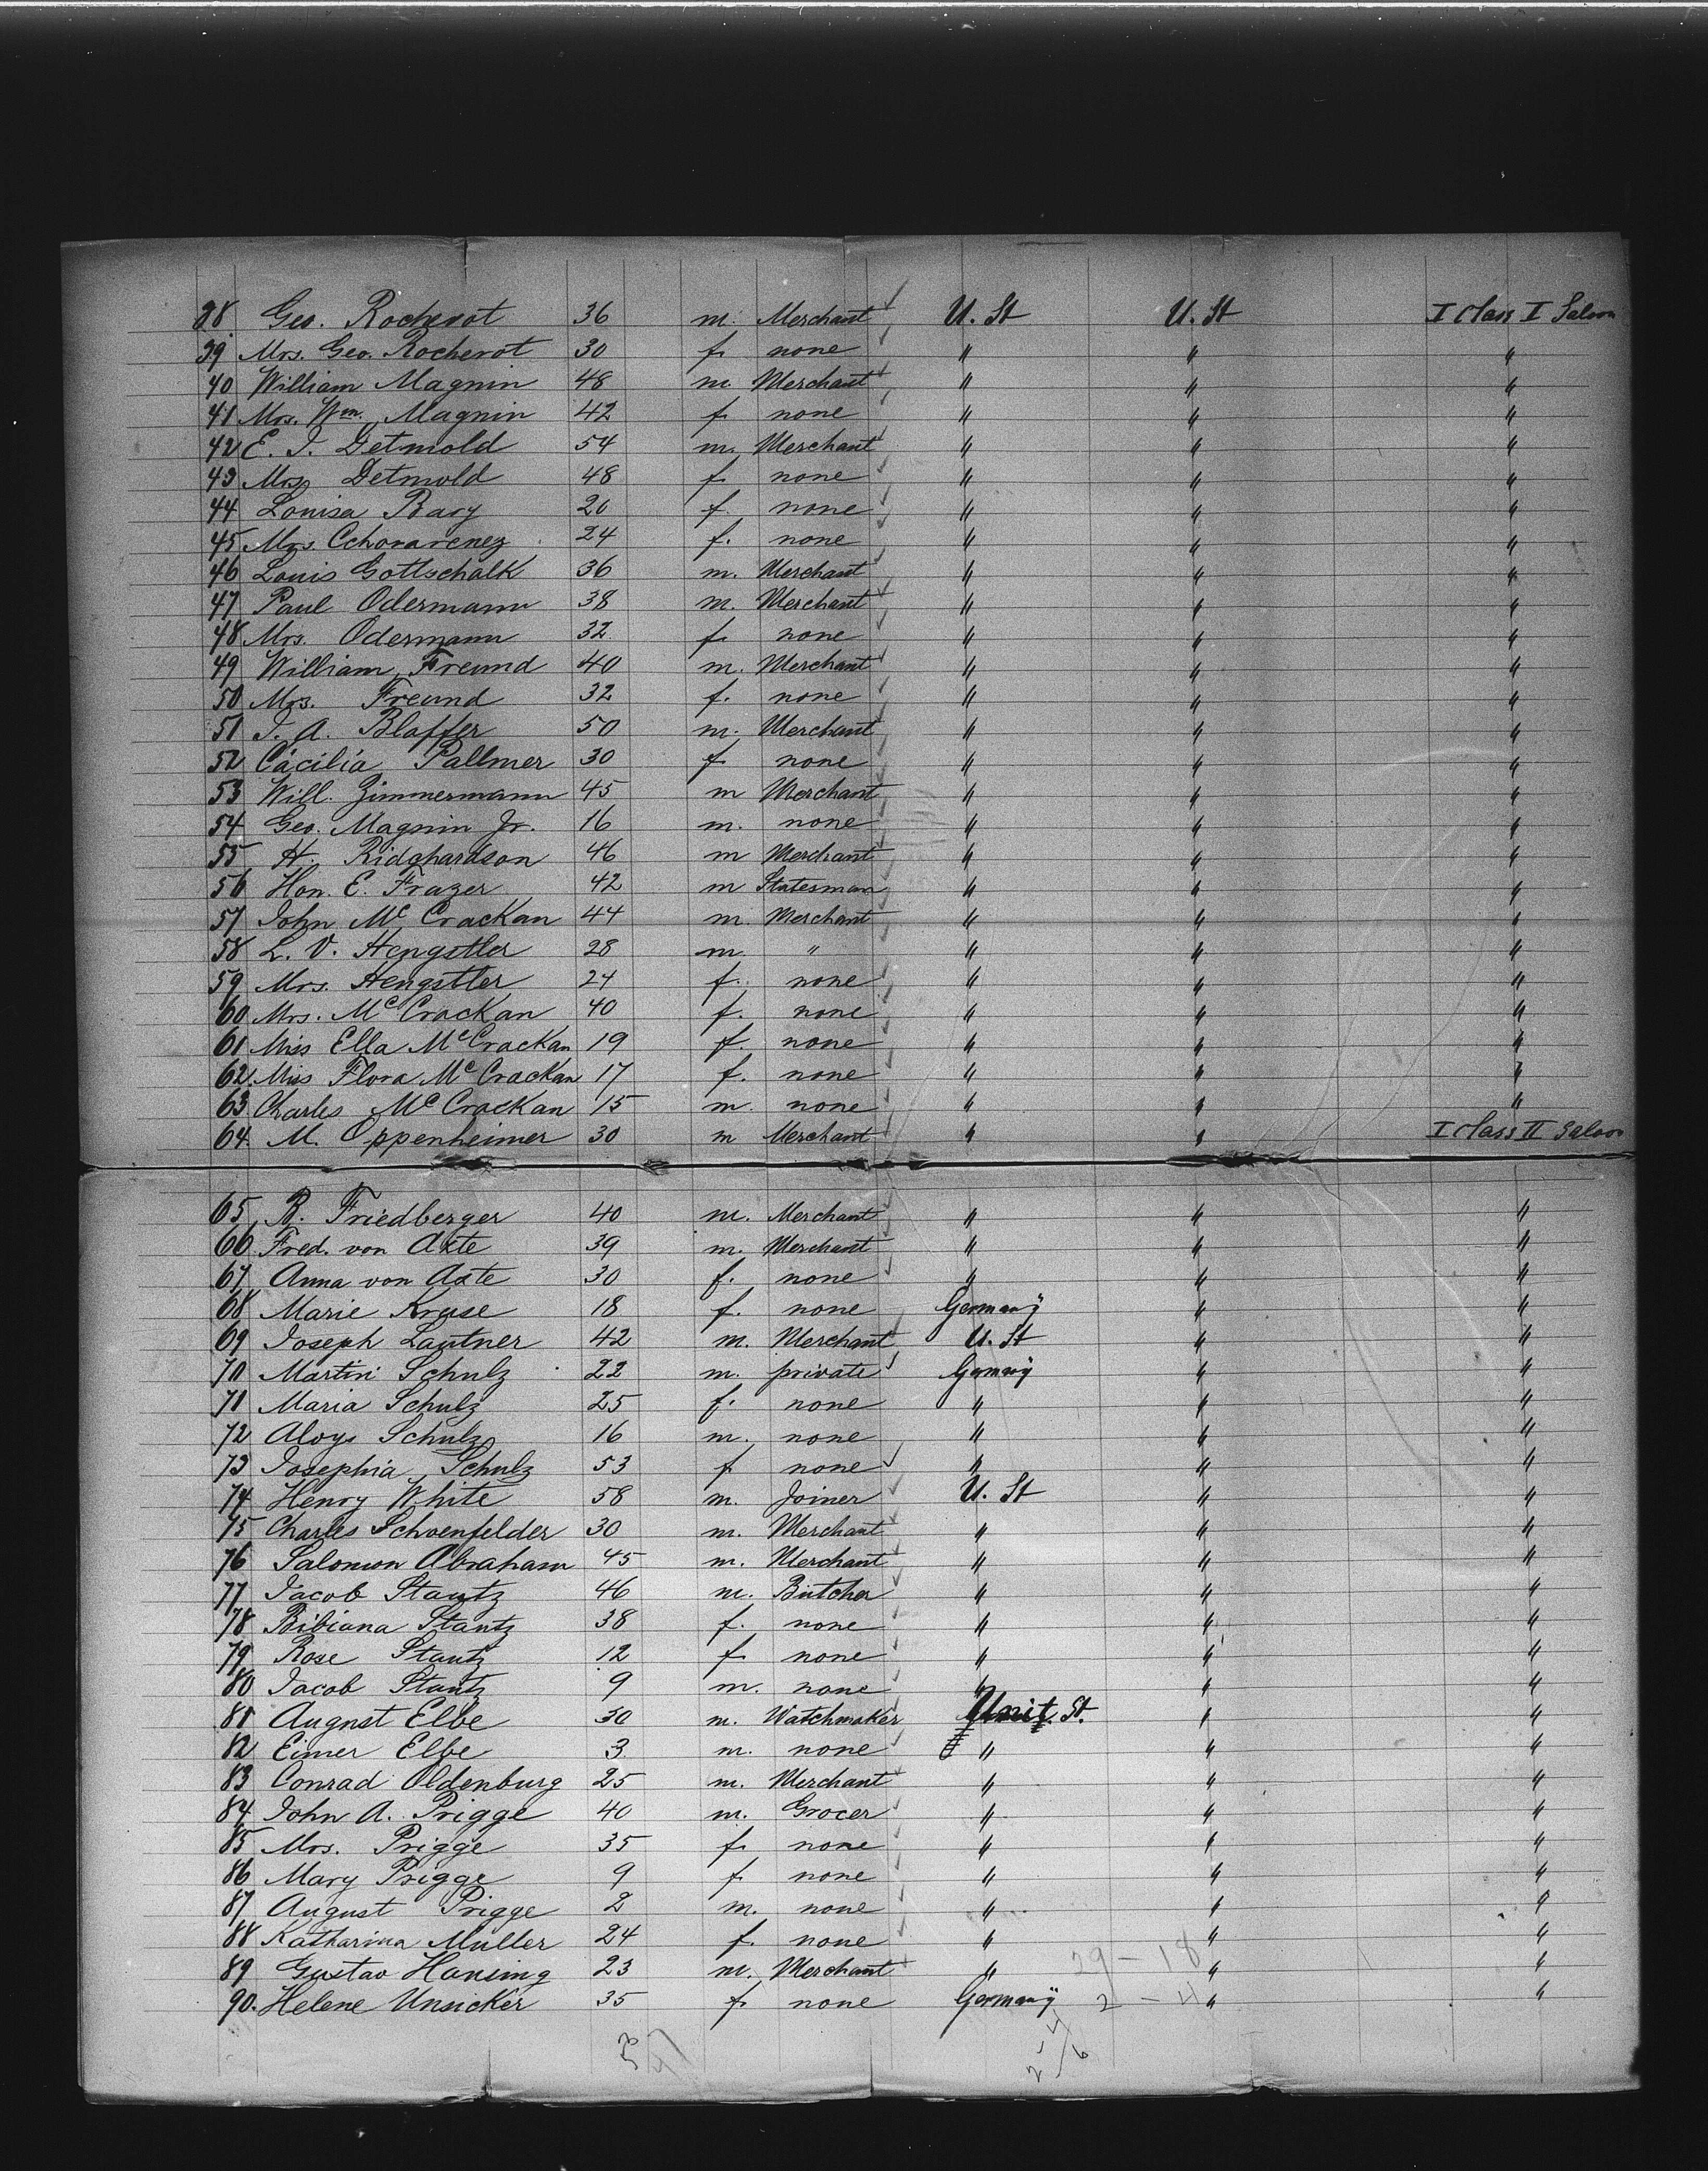 38 Geo. Rocherot 36 m. Merchant U. St U. St I Class I Saloon
39 Mrs. Geo. Rocherot 30 f. none " " "
40 William Magnin 48 m Merchant " " "
41 Mrs. Wm. Magnin 42 f none " " "
42 E. J. Detmold 54 m. Merchant " " "
43 Mrs Detmold 48 f none " " "
44 Louisa Bary 20 f. none " " "
45 Mrs. 24 f. none " " "
46 Louis Gottschalk 36 m. Merchant " " "
47 Paul Odermann 38 m. Merchant " " "
48 Mrs. Odermann 32 f none " " "
49 William Freund 40 m. Merchant " " "
50 Mrs. Freund 32 f. none " " "
51 J. A. Blaffer 50 m. Merchant " " "
52 Cäcilia Pallmer 30 f none " " "
53 Will. Zimmermann 45 m Merchant " " "
54 Geo. Magnin Jr. 16 m. none " " "
55 H. Ridghardson 46 m Merchant " " "
56 Hon. E. Frazer 42 m Statesman " " "
57 John Mc Crackan 44 m. Merchant " " "
58 L. V. Hengstler 28 m. " " " "
59 Mrs. Hengstler 24 f. none " " "
60 Mrs. Mc Crackan 40 f. none " " "
61 Miss Ella McCrackan 19 f. none " " "
62 Miss Flora Mc Crackan 17 f. none " " "
63 Charles Mc Crackan 15 m. none " " "
64. M. Oppenheimer 30 m Merchant " " I Class II Saloon
65 B. Friedberger 40 m. Merchant " " "
66 Fred. von Axte 39 m. Merchant " " "
67 Anna von Axte 30 f. none " " "
68 Marie Kruse 18 f. none Germany " "
69 Joseph Lautner 42 m. Merchant U. St " "
70 Martin Schulz 22 m. private Germany " "
71 Maria Schulz 25 f. none " " "
72 Aloys Schulz 16 m. none " " "
73 Josephia Schulz 53 f none " " "
74 Henry White 58 m. Joiner U. St " "
75 Charles Schoenfelder 30 m. Merchant " " "
76 Salomon Abraham 45 m. Merchant " " "
77 Jacob Stautz 46 m. Butcher " " "
78 Bibiana Stautz 38 f. none " " "
79 Rose Stautz 12 f none " " "
80 Jacob Stautz 9 m. none " " "
81 August Elbe 30 m. Watchmaker Unit. St. " "
82 Eimer Elbe 3 m. none " " "
83 Conrad Oldenburg 25 m. Merchant " " "
84 John A. Prigge 40 m. Grocer " " "
85 Mrs. Prigge 35 f. none " " "
86 Mary Prigge 9 f none " " "
87 August Prigge 2 m. none " " "
88 Katharina Muller 24 f. none " " "
89 Gustav Hansing 23 m. Merchant " 29 - 18 " "
90. Helene Unsicker 35 f none Germany 2 - 4 " "